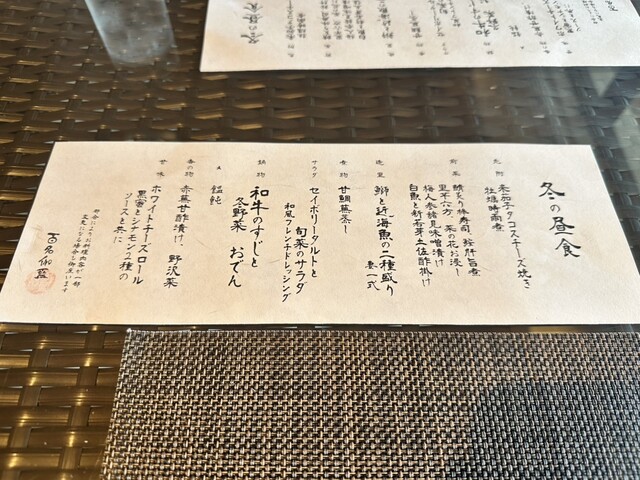 冬の昼食
先附
安曇野タコスチーズ焼き
牡蠣時雨煮
前菜
鯖炙り棒寿司 鮟肝旨煮
里芋六方 菜の花お浸し
梅人参諸見味噌漬け
白魚と新若芽土佐酢掛け
造里
鰤と近海魚の二種盛り
妻一式
煮物
甘鯛蕪蒸し
サラダ
セイボリータルトと
旬菜のサラダ
和風フレンチドレッシング
鍋物
和牛のすじと
冬野菜 おでん
饂飩
香の物
赤蕪甘酢漬け、野沢菜
甘味
ホワイトチーズロール
黒蜜とシナモン2種の
ソースと共に
都合によりお料理内容が一部
変更になる場合も御座います
百名伽藍